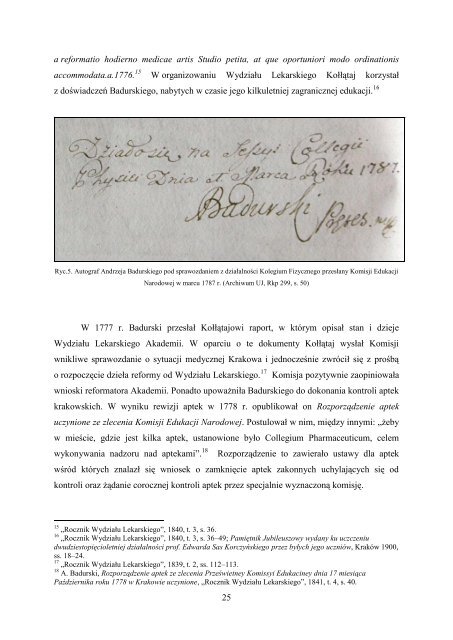 a reformatio hodierno medicae artis Studio petita, at que oportuniori modo ordinationis
accommodata.a.1776.15 W organizowaniu Wydziału Lekarskiego Kołłątaj korzystał
z doświadczeń Badurskiego, nabytych w czasie jego kilkuletniej zagranicznej edukacji.16
Działo się na Sessyi Collegii
Physici Dnia Marca Roku 1787.
Badurski
Ryc.5. Autograf Andrzeja Badurskiego pod sprawozdaniem z działalności Kolegium Fizycznego przesłany Komisji Edukacji
Narodowej w marcu 1787 r. (Archiwum UJ, Rkp 299, s. 50)
W 1777 r. Badurski przesłał Kołłątajowi raport, w którym opisał stan i dzieje
Wydziału Lekarskiego Akademii. W oparciu o te dokumenty Kołłątaj wysłał Komisji
wnikliwe sprawozdanie o sytuacji medycznej Krakowa i jednocześnie zwrócił się z prośbą
o rozpoczęcie dzieła reformy od Wydziału Lekarskiego.17 Komisja pozytywnie zaopiniowała
wnioski reformatora Akademii. Ponadto upoważniła Badurskiego do dokonania kontroli aptek
krakowskich. W wyniku rewizji aptek w 1778 r. opublikował on Rozporządzenie aptek
uczynione ze zlecenia Komisji Edukacji Narodowej. Postulował w nim, między innymi: „żeby
w mieście, gdzie jest kilka aptek, ustanowione było Collegium Pharmaceuticum, celem
wykonywania nadzoru nad aptekami”.18 Rozporządzenie to zawierało ustawy dla aptek
wśród których znalazł się wniosek o zamknięcie aptek zakonnych uchylających się od
kontroli oraz żądanie corocznej kontroli aptek przez specjalnie wyznaczoną komisję.
15 „Rocznik Wydziału Lekarskiego”, 1840, t. 3, s. 36.
16 „Rocznik Wydziału Lekarskiego”, 1840, t. 3, s. 36–49; Pamiętnik Jubileuszowy wydany ku uczczeniu
dwudziestopięcioletniej działalności prof. Edwarda Sas Korczyńskiego przez byłych jego uczniów, Kraków 1900,
ss. 18–24.
17 „Rocznik Wydziału Lekarskiego”, 1839, t. 2, ss. 112–113.
18 A. Badurski, Rozporządzenie aptek ze zlecenia Prześwietney Komissyi Edukaciney dnia 17 miesiąca
Października roku 1778 w Krakowie uczynione, „Rocznik Wydziału Lekarskiego”, 1841, t. 4, s. 40.
25